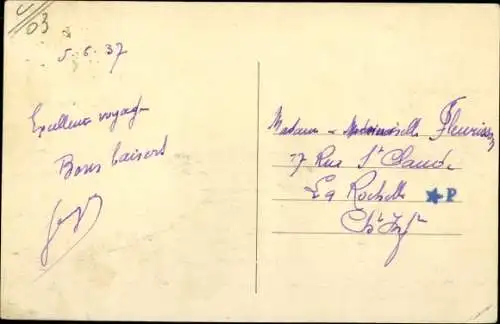 03
5.6.37
Excellent voyage
Bons baisers
Madame - Mademoiselle Fleurisson
17 Rue St Claude
La Rochelle
★P
Ch^te Inf^re